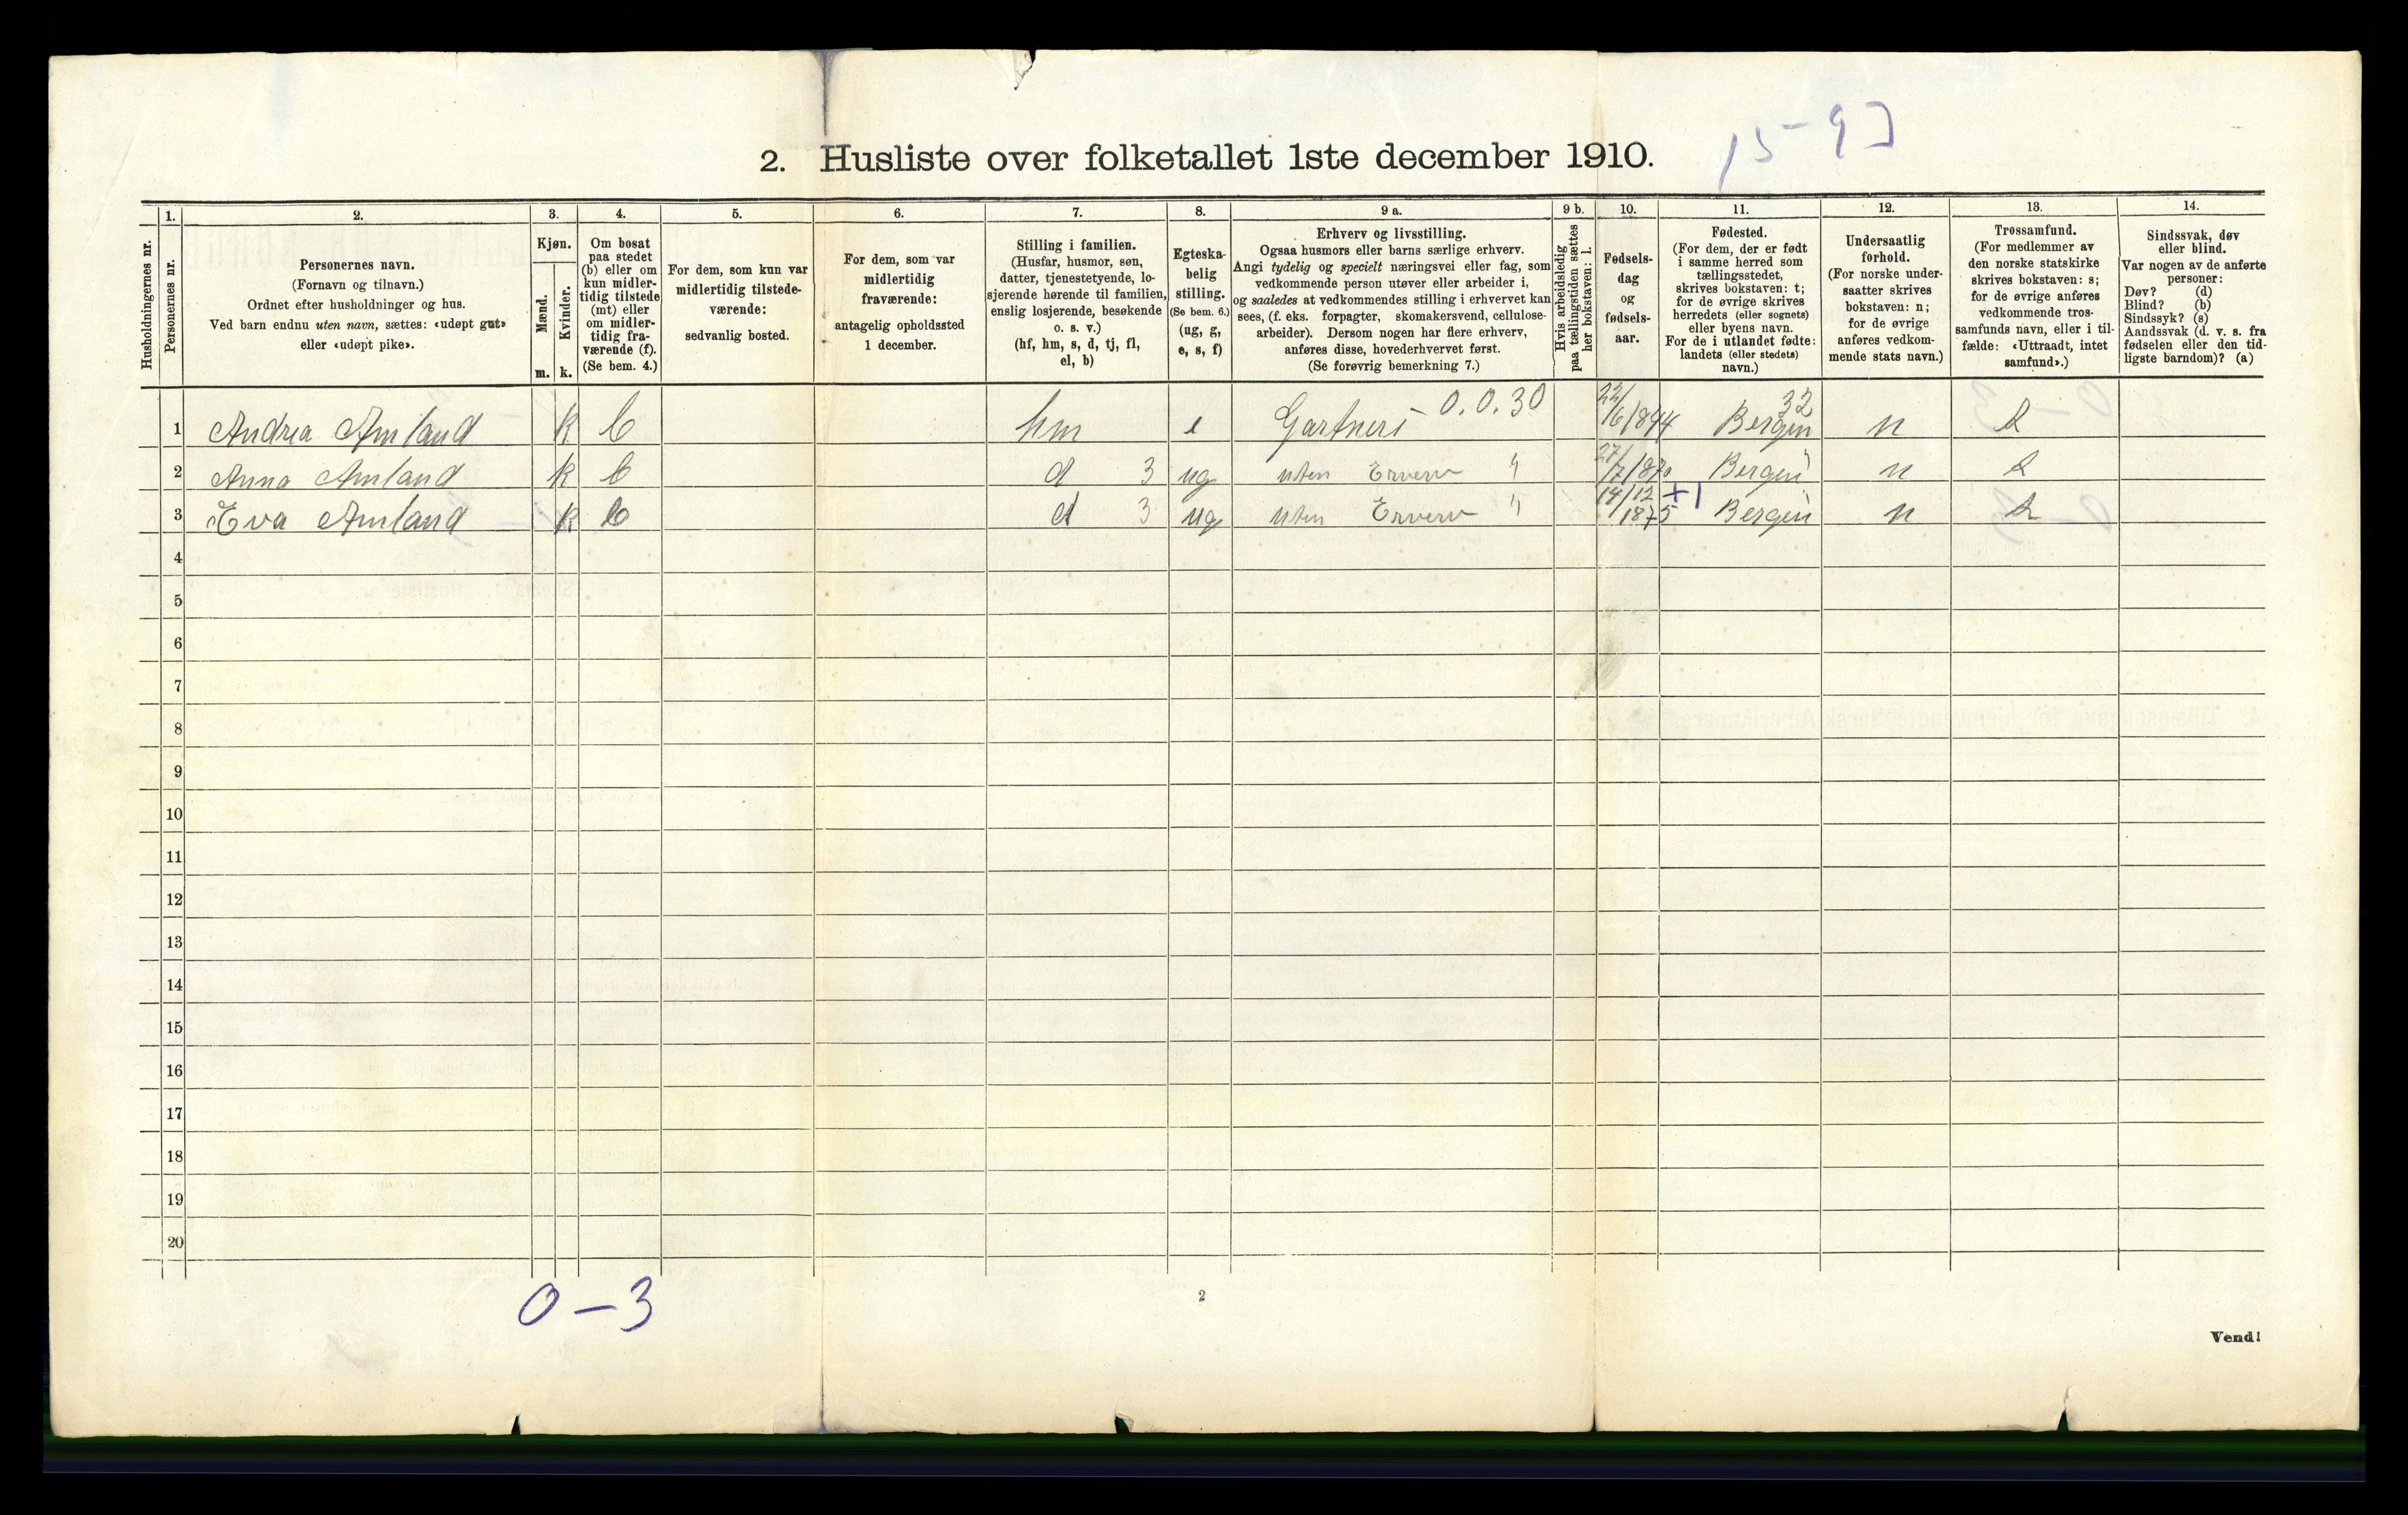 15-93
2. Husliste over folketallet 1ste december 1910.
Husholdningernes nr.
1.
Personernes nr.
2.
Personernes navn.
(Fornavn og tilnavn.)
Ordnet efter husholdninger og hus.
Ved barn endnu uten navn, sættes: «udøpt gut»
eller «udøpt pike».
3.
Kjøn.
Mænd.
Kvinder.
m. k.
4.
Om bosat
paa stedet
(b) eller om
kun midler-
tidig tilstede
(mt) eller
om midler-
tidig fra-
værende (f).
(Se bem. 4.)
5.
For dem, som kun var
midlertidig tilstede-
værende:
sedvanlig bosted.
6.
For dem, som var
midlertidig
fraværende:
antagelig opholdssted
1 december.
7.
Stilling i familien.
(Husfar, husmor, søn,
datter, tjenestetyende, lo-
sjerende hørende til familien,
enslig losjerende, besøkende
o. s. v.)
(hf, hm, s, d, tj, fl,
el, b)
8.
Egteska-
belig
stilling.
(Se bem. 6.)
(ug, g,
e, s, f)
9 a.
Erhverv og livsstilling.
Ogsaa husmors eller barns særlige erhverv.
Angi tydelig og specielt næringsvei eller fag, som
vedkommende person utøver eller arbeider i,
og saaledes at vedkommendes stilling i erhvervet kan
sees, (f. eks. forpagter, skomakersvend, cellulose-
arbeider). Dersom nogen har flere erhverv,
anføres disse, hovederhvervet først.
(Se forøvrig bemerkning 7.)
9 b.
Hvis arbeidsledig
paa tællingstiden sættes
her bokstaven: l.
10.
Fødsels-
dag
og
fødsels-
aar.
11.
Fødested.
(For dem, der er født
i samme herred som
tællingsstedet,
skrives bokstaven: t;
for de øvrige skrives
herredets (eller sognets)
eller byens navn.
For de i utlandet fødte:
landets (eller stedets)
navn.)
12.
Undersaatlig
forhold.
(For norske under-
saatter skrives
bokstaven: n;
for de øvrige
anføres vedkom-
mende stats navn.)
13.
Trossamfund.
(For medlemmer av
den norske statskirke
skrives bokstaven: s;
for de øvrige anføres
vedkommende tros-
samfunds navn, eller i til-
fælde: «Uttraadt, intet
samfund».)
14.
Sindssvak, døv
eller blind.
Var nogen av de anførte
personer:
Døv? (d)
Blind? (b)
Sindssyk? (s)
Aandssvak (d. v. s. fra
fødselen eller den tid-
ligste barndom)? (a)
1 Andrea Amland k b hm e Gartneri 0.0.30 22/6 1844 32 Bergen n s
2 Anna Amland k b d 3 ug uten Erverv " 27/7 1870 Bergen n s
3 Eva Amland k b d 3 ug uten Erverv " 14/12 1875 +1 Bergen n s
4
5
6
7
8
9
10
11
12
13
14
15
16
17
18
19
20
0-3
2
Vend!